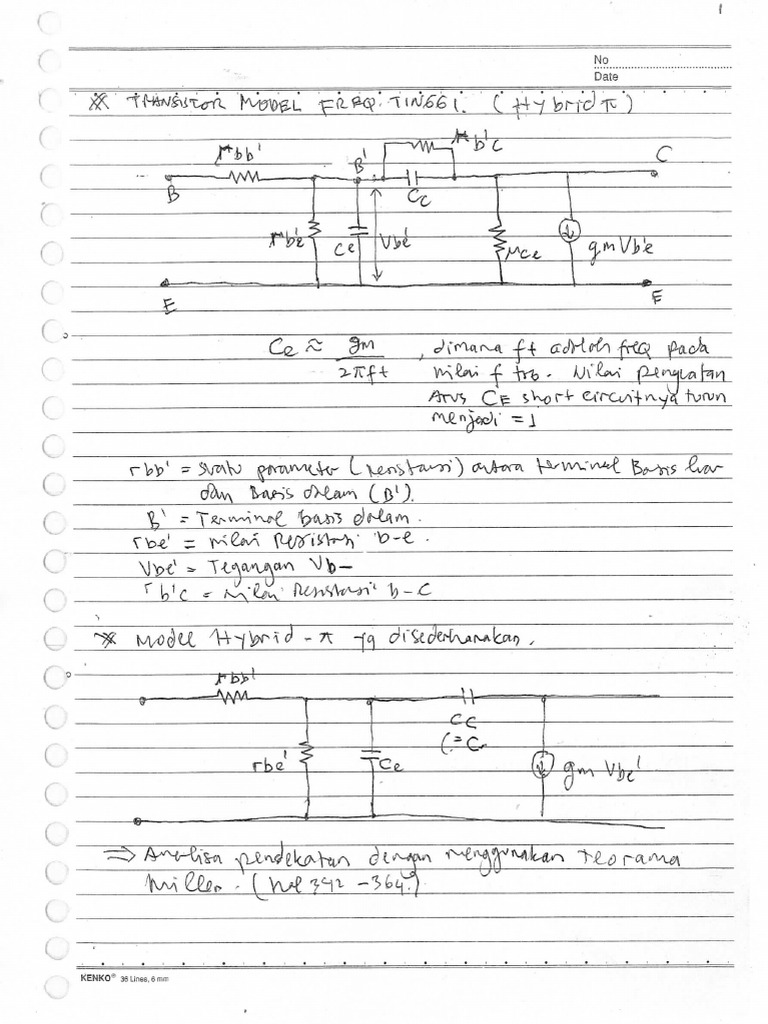 1
No
Date
※ TRANSISTOR MODEL FREQ. TINGGI. (Hybrid π)
rbb'
B'
rb'c
C
B
Cc
rb'e
Ce
Vb'e
rce
gm Vb'e
E
E
Ce ≈ gm / 2πft , dimana ft adalah freq pada
nilai f trb. Nilai penguatan
Arus CE short circuitnya turun
menjadi = 1
rbb' = suatu parameter (resistansi) antara terminal Basis luar
dan Basis dalam (B').
B' = Terminal basis dalam.
rbe' = nilai Resistansi b-e.
Vbe' = Tegangan Vb-
rb'c = Nilai Resistansi b-C
※ Model Hybrid-π yg disederhanakan.
rbb'
Cc
(=C
rbe'
Ce
gm Vbe'
⇒ Analisa pendekatan dengan menggunakan teorama
Miller. (hal 342 - 364?)
KENKO® 36 Lines, 6 mm